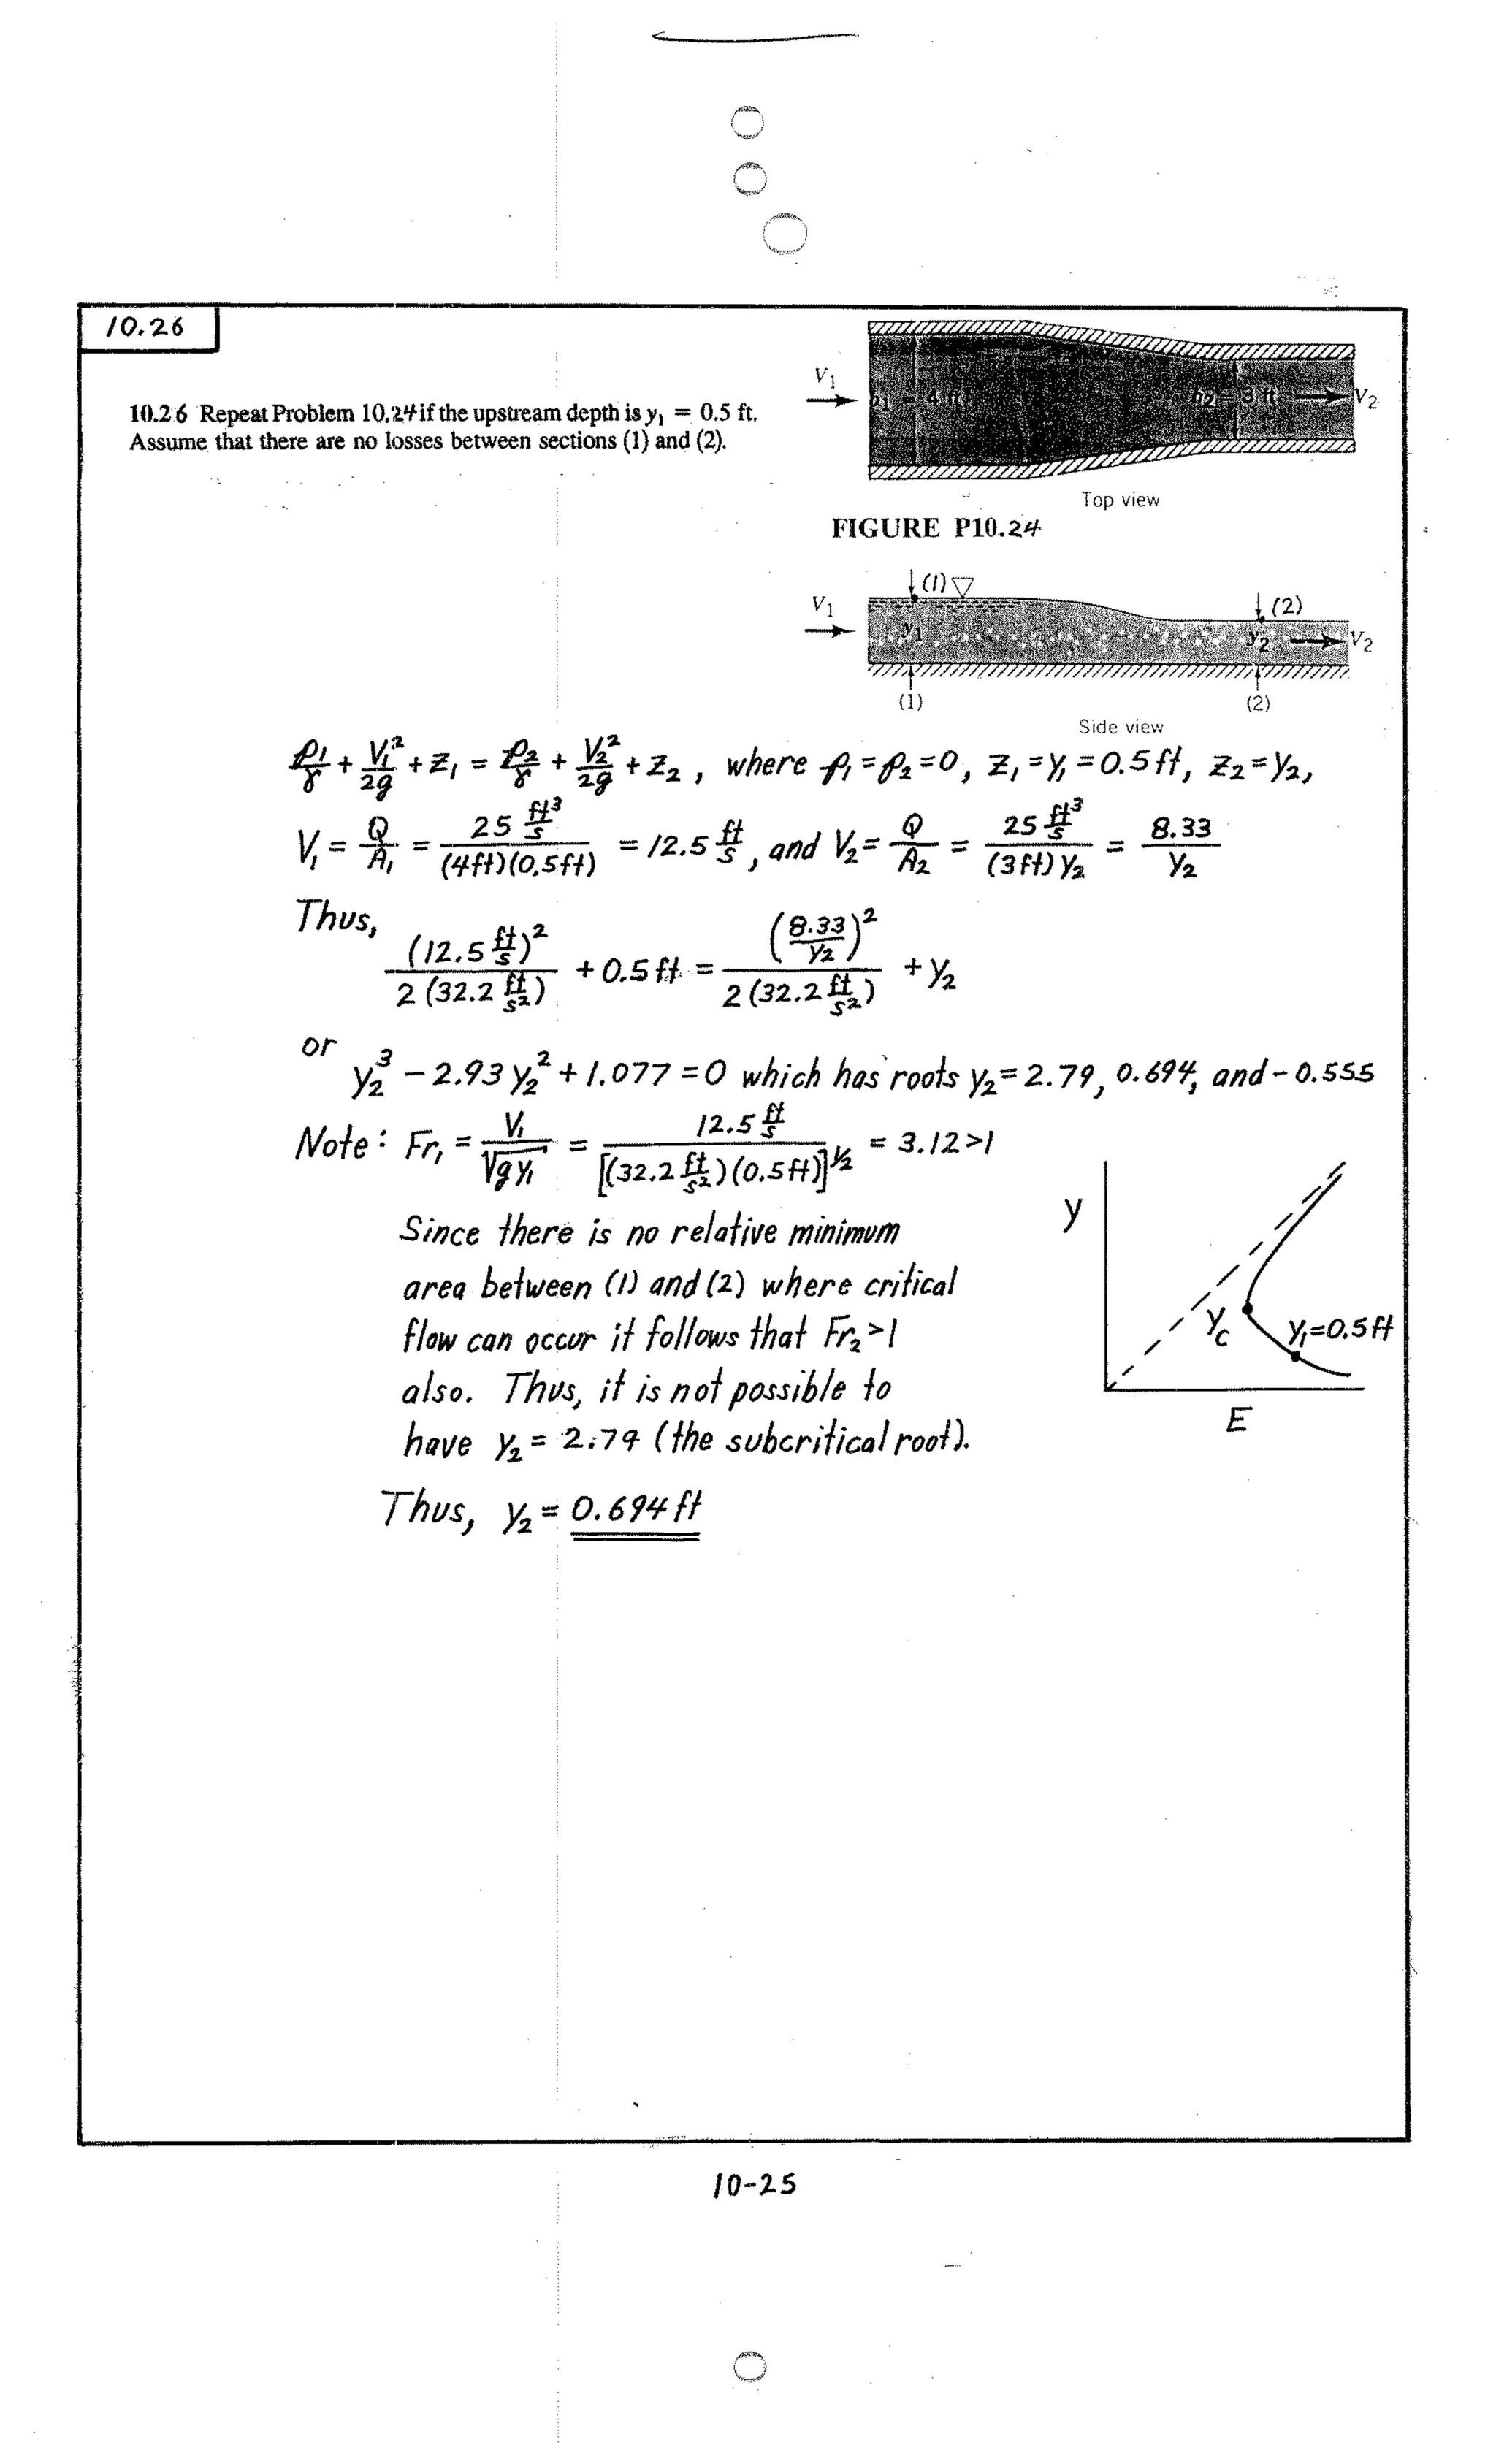 10.26
10.26 Repeat Problem 10.24 if the upstream depth is y₁ = 0.5 ft.
Assume that there are no losses between sections (1) and (2).
V₁ b₁ = 4 ft b₂ = 3 ft V₂
Top view
FIGURE P10.24
(1)
V₁ y₁ (2) y₂ V₂
(1) (2)
Side view
p₁/γ + V₁²/2g + z₁ = p₂/γ + V₂²/2g + z₂ , where p₁ = p₂ = 0, z₁ = y₁ = 0.5 ft, z₂ = y₂,
V₁ = Q/A₁ = 25 ft³/s / (4ft)(0.5ft) = 12.5 ft/s , and V₂ = Q/A₂ = 25 ft³/s / (3 ft) y₂ = 8.33/y₂
Thus,
(12.5 ft/s)² / 2 (32.2 ft/s²) + 0.5 ft = (8.33/y₂)² / 2 (32.2 ft/s²) + y₂
or
y₂³ − 2.93 y₂² + 1.077 = 0 which has roots y₂ = 2.79, 0.694, and − 0.555
Note: Fr₁ = V₁/√gy₁ = 12.5 ft/s / [(32.2 ft/s²)(0.5 ft)]^½ = 3.12 > 1
Since there is no relative minimum
area between (1) and (2) where critical
flow can occur it follows that Fr₂ > 1
also. Thus, it is not possible to
have y₂ = 2.79 (the subcritical root).
Thus, y₂ = 0.694 ft
y
y_c y₁=0.5 ft
E
10-25